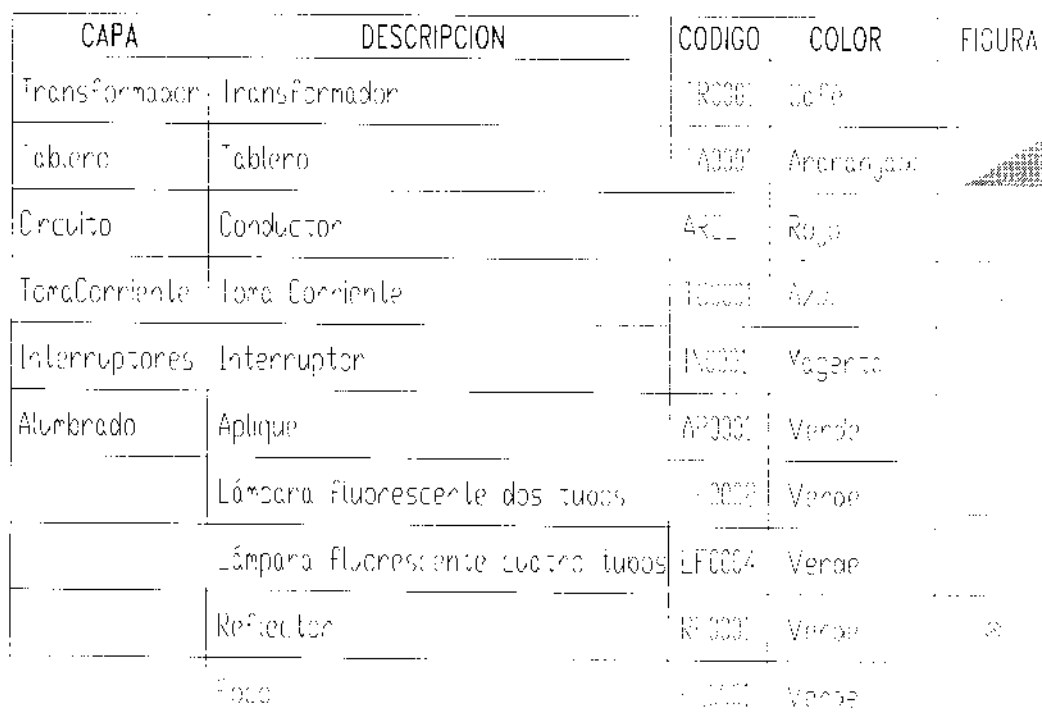 CAPA DESCRIPCION CODIGO COLOR FIGURA
Transformador Transformador Café
Tablero Tablero TA0001 Anaranjado
Circuito Conductor Rojo
TomaCorriente Toma Corriente Azul
Interruptores Interruptor IN0001 Magenta
Alumbrado Aplique AP0001 Verde
Lámpara fluorescente dos tubos Verde
Lámpara fluorescente cuatro tubos LF0004 Verde
Reflector Verde
Foco Verde